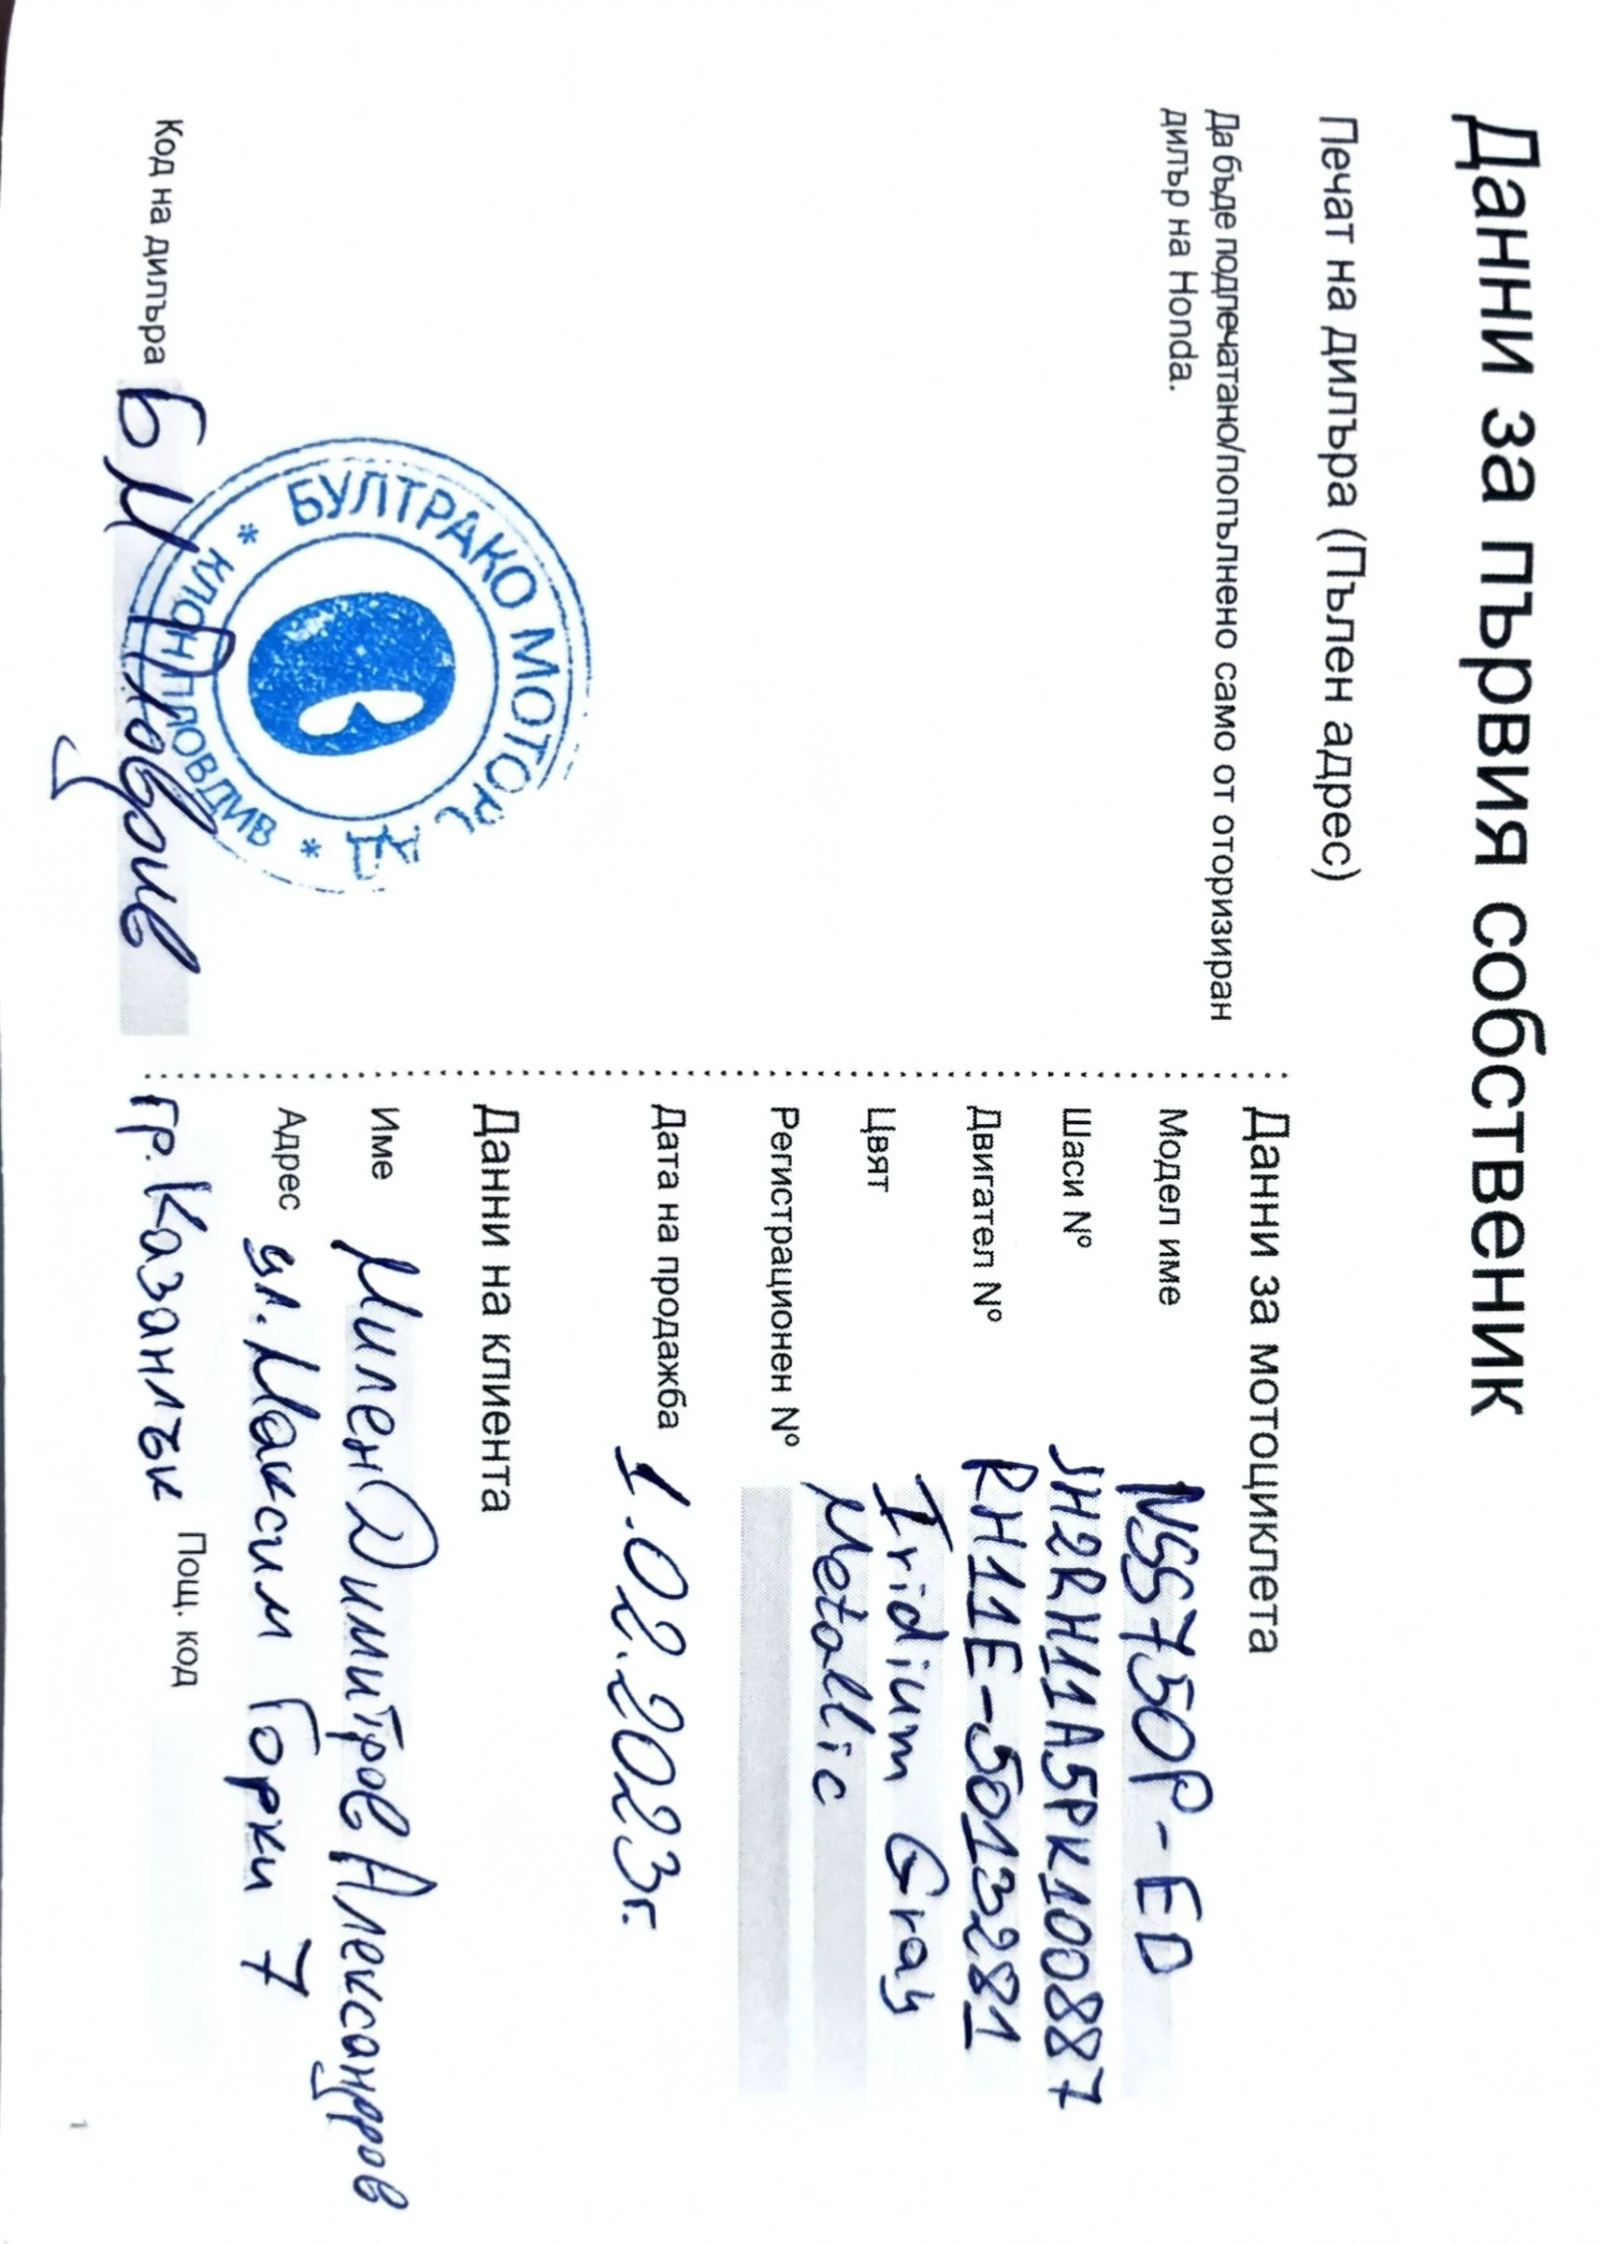 Данни за първия собственик
Печат на дилъра (Пълен адрес)
Да бъде подпечатано/попълнено само от оторизиран
дилър на Honda.
БУЛТРАКО МОТОРС АД
* КЛОН ПЛОВДИВ *
Код на дилъра БМ Пловдив
Данни за мотоциклета
Модел име NSS750P-ED
Шаси № JH2RH11A5PK100887
Двигател № RH11E-5013281
Цвят Iridium Gray
Metallic
Регистрационен №
Дата на продажба 1.02.2023г.
Данни на клиента
Име Милен Димитров Александров
Адрес ул. Максим Горки 7
гр. Казанлък Пощ. код
1